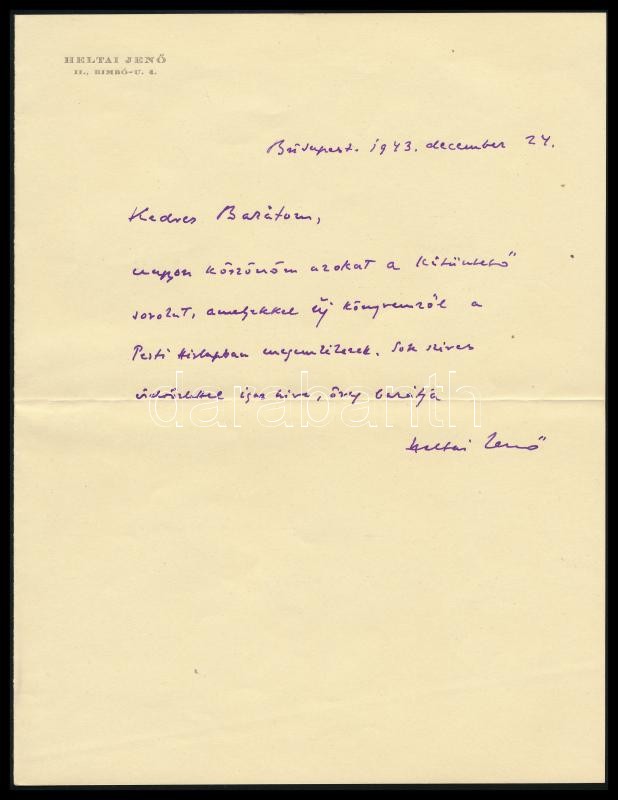 HELTAI JENŐ
II., BIMBÓ-U. 4.
Budapest. 1943. december 24.
Kedves Barátom,
nagyon köszönöm azokat a kitüntető
sorokat, amelyekkel új könyvemről a
Pesti Hirlapban megemlékezek. Sok szives
üdvözlettel igaz hive, öreg barátja
darabanth
Heltai Jenő